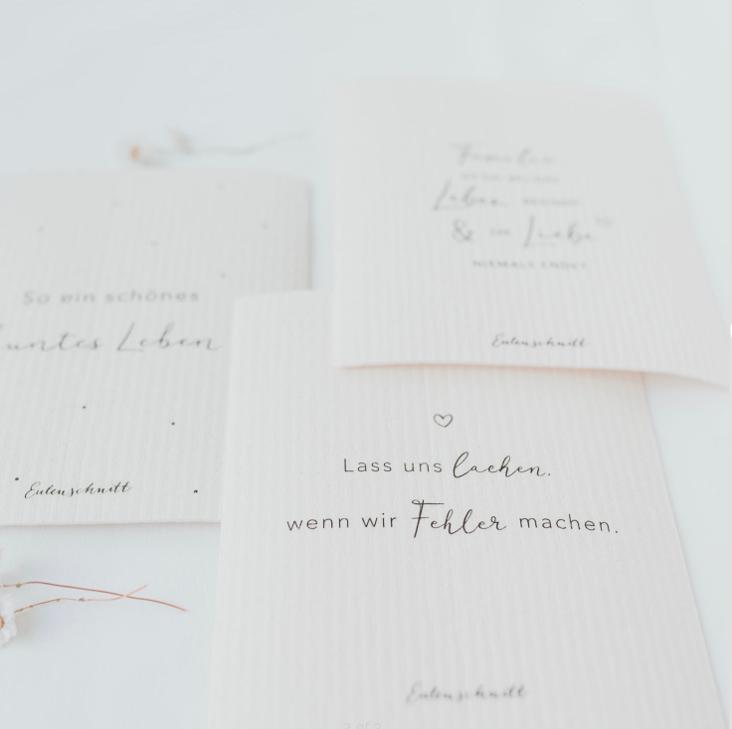 Familie
Leben beginnt
& die Liebe
NIEMALS ENDET
Eulenschnitt
So ein schönes
untes Leben
Eulenschnitt
Lass uns lachen.
wenn wir Fehler machen.
Eulenschnitt